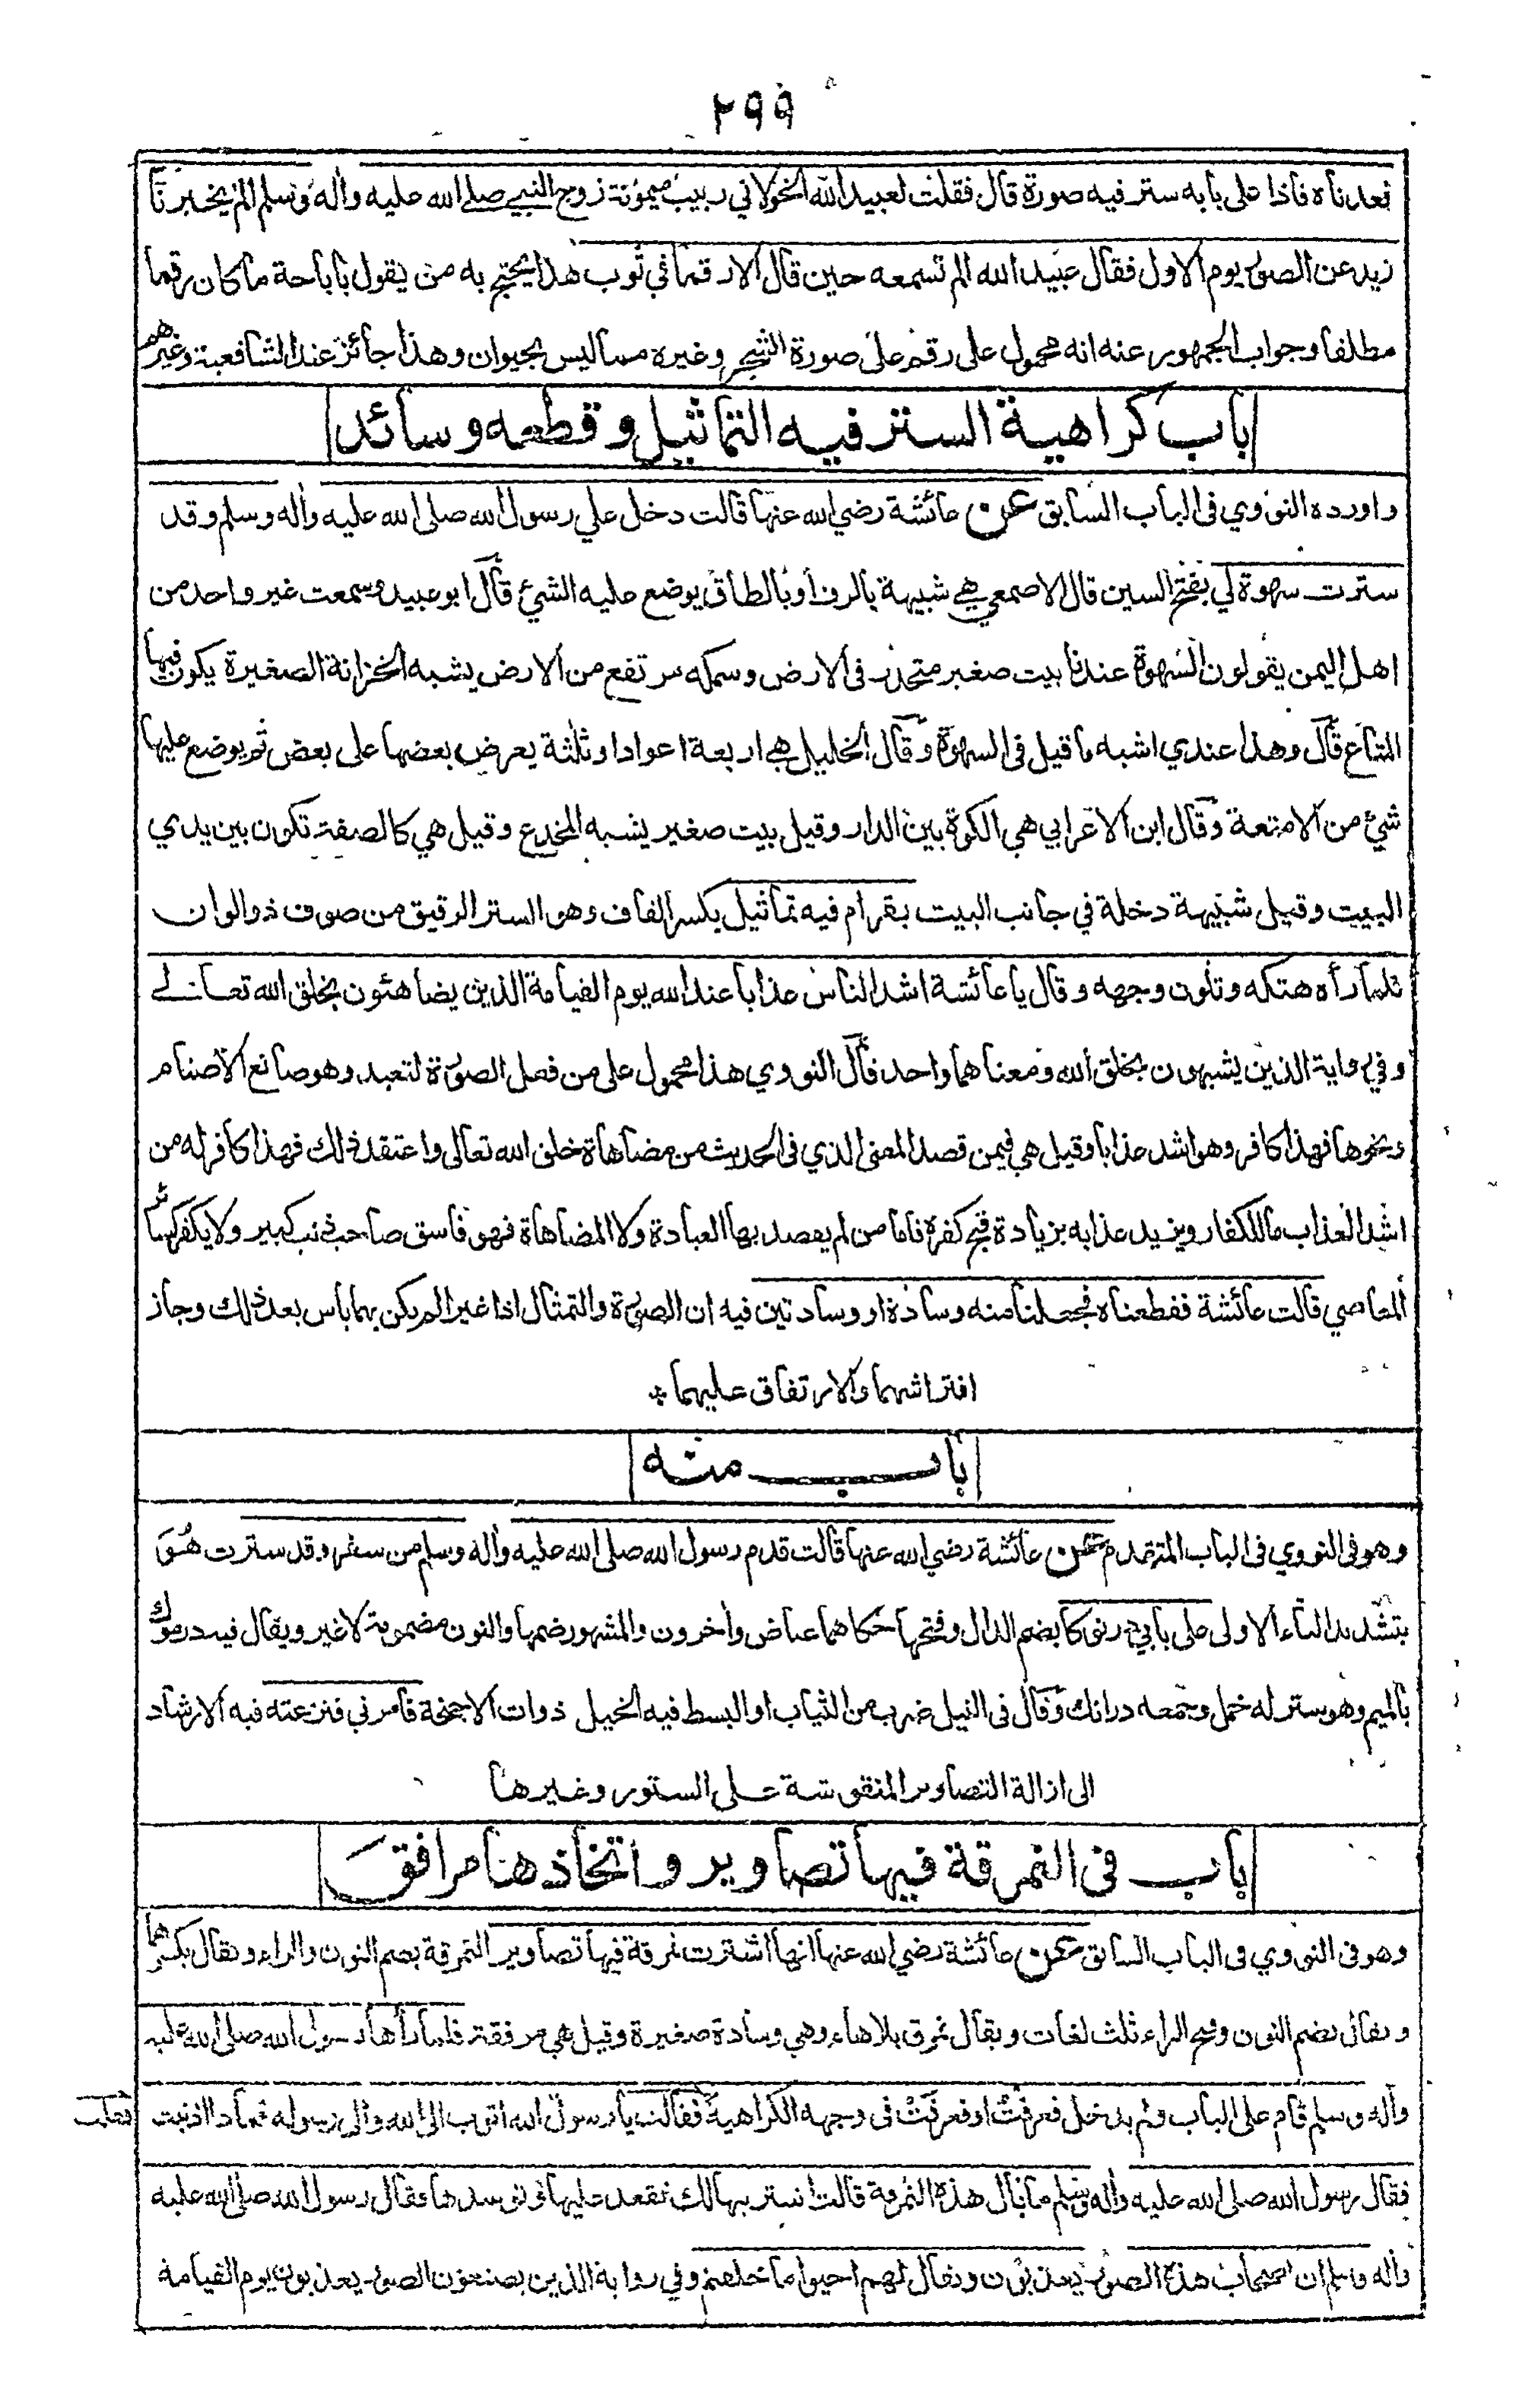 ٢٩٩
فعدناه فاذا على بابه ستر فيه صورة قال فقلت لعبيد الله الخولاني ربيب ميمونة زوج النبي صلى الله عليه واله وسلم الم يخبرنا
زيد عن الصور يوم الاول فقال عبيد الله الم تسمعه حين قال الا رقما في ثوب هذا يحتج به من يقول باباحة ما كان رقما
مطلقا وجواب الجمهور عنه انه محمول على رقم على صورة الشجر وغيره مما ليس بحيوان وهذا جائز عند الشافعية وغيرهم
باب كراهية الستر فيه التماثيل وقطعه وسائد
واورده النووي في الباب السابق عن عائشة رضي الله عنها قالت دخل علي رسول الله صلى الله عليه واله وسلم وقد
سترت سهوة لي بفتح السين قال الاصمعي هي شبيهة بالرف او بالطاق يوضع عليه الشئ قال ابو عبيد وسمعت غير واحد من
اهل اليمن يقولون السهوة عندنا بيت صغير متحدر في الارض وسمكه مرتفع من الارض يشبه الخزانة الصغيرة يكون فيها
المتاع قال وهذا عندي اشبه ما قيل في السهوة وقال الخليل هي اربعة اعواد او ثلثة يعرض بعضها على بعض ثم يوضع عليها
شئ من الامتعة وقال ابن الاعرابي هي الكوة بين الدار وقيل بيت صغير يشبه المخدع وقيل هي كالصفة تكون بين يدي
البيت وقيل شبيهة دخلة في جانب البيت بقرام فيه تماثيل بكسر القاف وهو الستر الرقيق من صوف ذو الوان
فلما رأه هتكه وتلون وجهه وقال يا عائشة اشد الناس عذابا عند الله يوم القيامة الذين يضاهئون بخلق الله تعالى
وفي رواية الذين يشبهون بخلق الله ومعناهما واحد قال النووي هذا محمول على من فعل الصورة لتعبد وهو صانع الاصنام
ونحوها فهذا كافر وهو اشد عذابا وقيل هي فيمن قصد المعنى الذي في الحديث من مضاهاة خلق الله تعالى واعتقد ذلك فهذا كافر له من
اشد العذاب ما للكفار ويزيد عذابه بزيادة قبح كفره فاما من لم يقصد بها العبادة ولا المضاهاة فهو فاسق صاحب ذنب كبير ولا يكفر كسائر
المعاصي قالت عائشة فقطعناه فجعلنا منه وسادة او وسادتين فيه ان الصورة والتمثال اذا غيرا لم يكن بهما باس بعد ذلك وجاز
افتراشهما والارتفاق عليهما *
باب منه
وهو في النووي في الباب المتقدم عن عائشة رضي الله عنها قالت قدم رسول الله صلى الله عليه واله وسلم من سفر وقد سترت هو
بتشديد التاء الاولى على بابي درنوكا بضم الدال وفتحها حكاهما عياض واخرون والمشهور ضمها والنون مضمومة لا غير ويقال فيه درموك
بالميم وهو ستر له خمل وجمعه درانك وقال في النيل ضرب من الثياب او البسط فيه الخيل ذوات الاجنحة فامرني فنزعته فيه الارشاد
الى ازالة التصاوير المنقوشة على الستور وغيرها
باب في النمرقة فيها تصاوير واتخاذها مرافق
وهو في النووي في الباب السابق عن عائشة رضي الله عنها انها اشترت نمرقة فيها تصاوير النمرقة بضم النون والراء ويقال بكسرهما
ويقال بضم النون وفتح الراء ثلث لغات ويقال نمرق بلا هاء وهي وسادة صغيرة وقيل هي مرفقة فلما رأها رسول الله صلى الله عليه
واله وسلم قام على الباب ولم يدخل فعرفت او فعرفت في وجهه الكراهية فقالت يا رسول الله اتوب الى الله والى رسوله فماذا اذنبت
فقال رسول الله صلى الله عليه واله وسلم ما بال هذه النمرقة قالت اشتريتها لك تقعد عليها وتوسدها فقال رسول الله صلى الله عليه
واله وسلم ان اصحاب هذه الصور يعذبون ويقال لهم احيوا ما خلقتم وفي رواية الذين يصنعون الصور يعذبون يوم القيامة